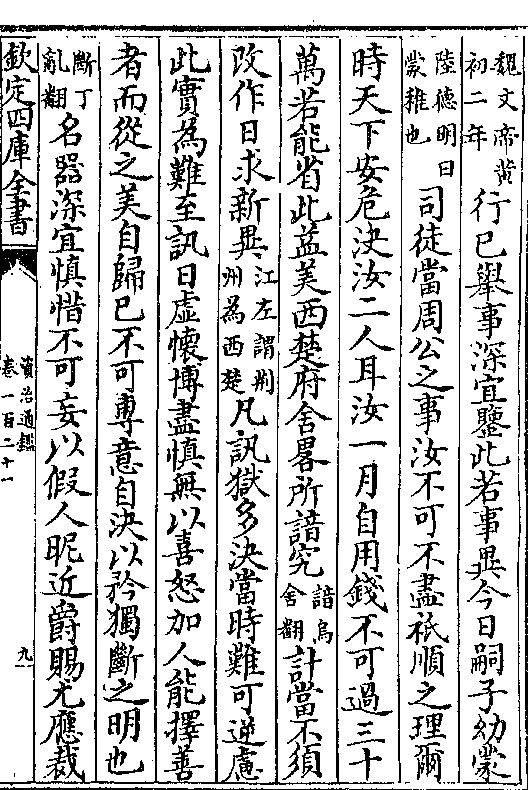 魏文帝黄初二年行已舉事深宜鑒此若事異今日嗣子幼蒙
陸德明曰蒙稚也司徒當周公之事汝不可不盡祗順之理爾
時天下安危決汝二人耳汝一月自用錢不可過三十
萬若能省此益美西楚府舍畧所諳究諳烏舍翻計當不須
改作日求新異江左謂荆州為西楚凡訊獄多決當時難可逆慮
此實為難至訊日虚懷博盡慎無以喜怒加人能擇善
者而從之美自歸已不可專意自決以矜獨斷之明也
斷丁亂翻名器深宜慎惜不可妄以假人昵近爵賜尤應裁
欽定四庫全書
資治通鑑
卷一百二十一
九